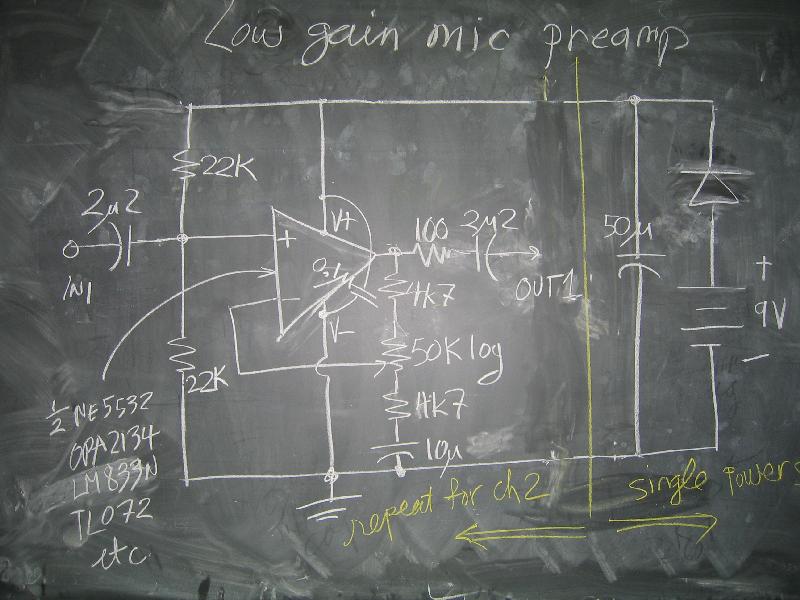 Low gain mic preamp
22K
2µ2
IN1
+
V+
0.1µ
V-
100
2µ2
OUT1
4k7
50K log
4k7
10µ
22K
50µ
+
9V
-
½ NE5532
OPA2134
LM833N
TL072
etc
repeat for ch2
single power s